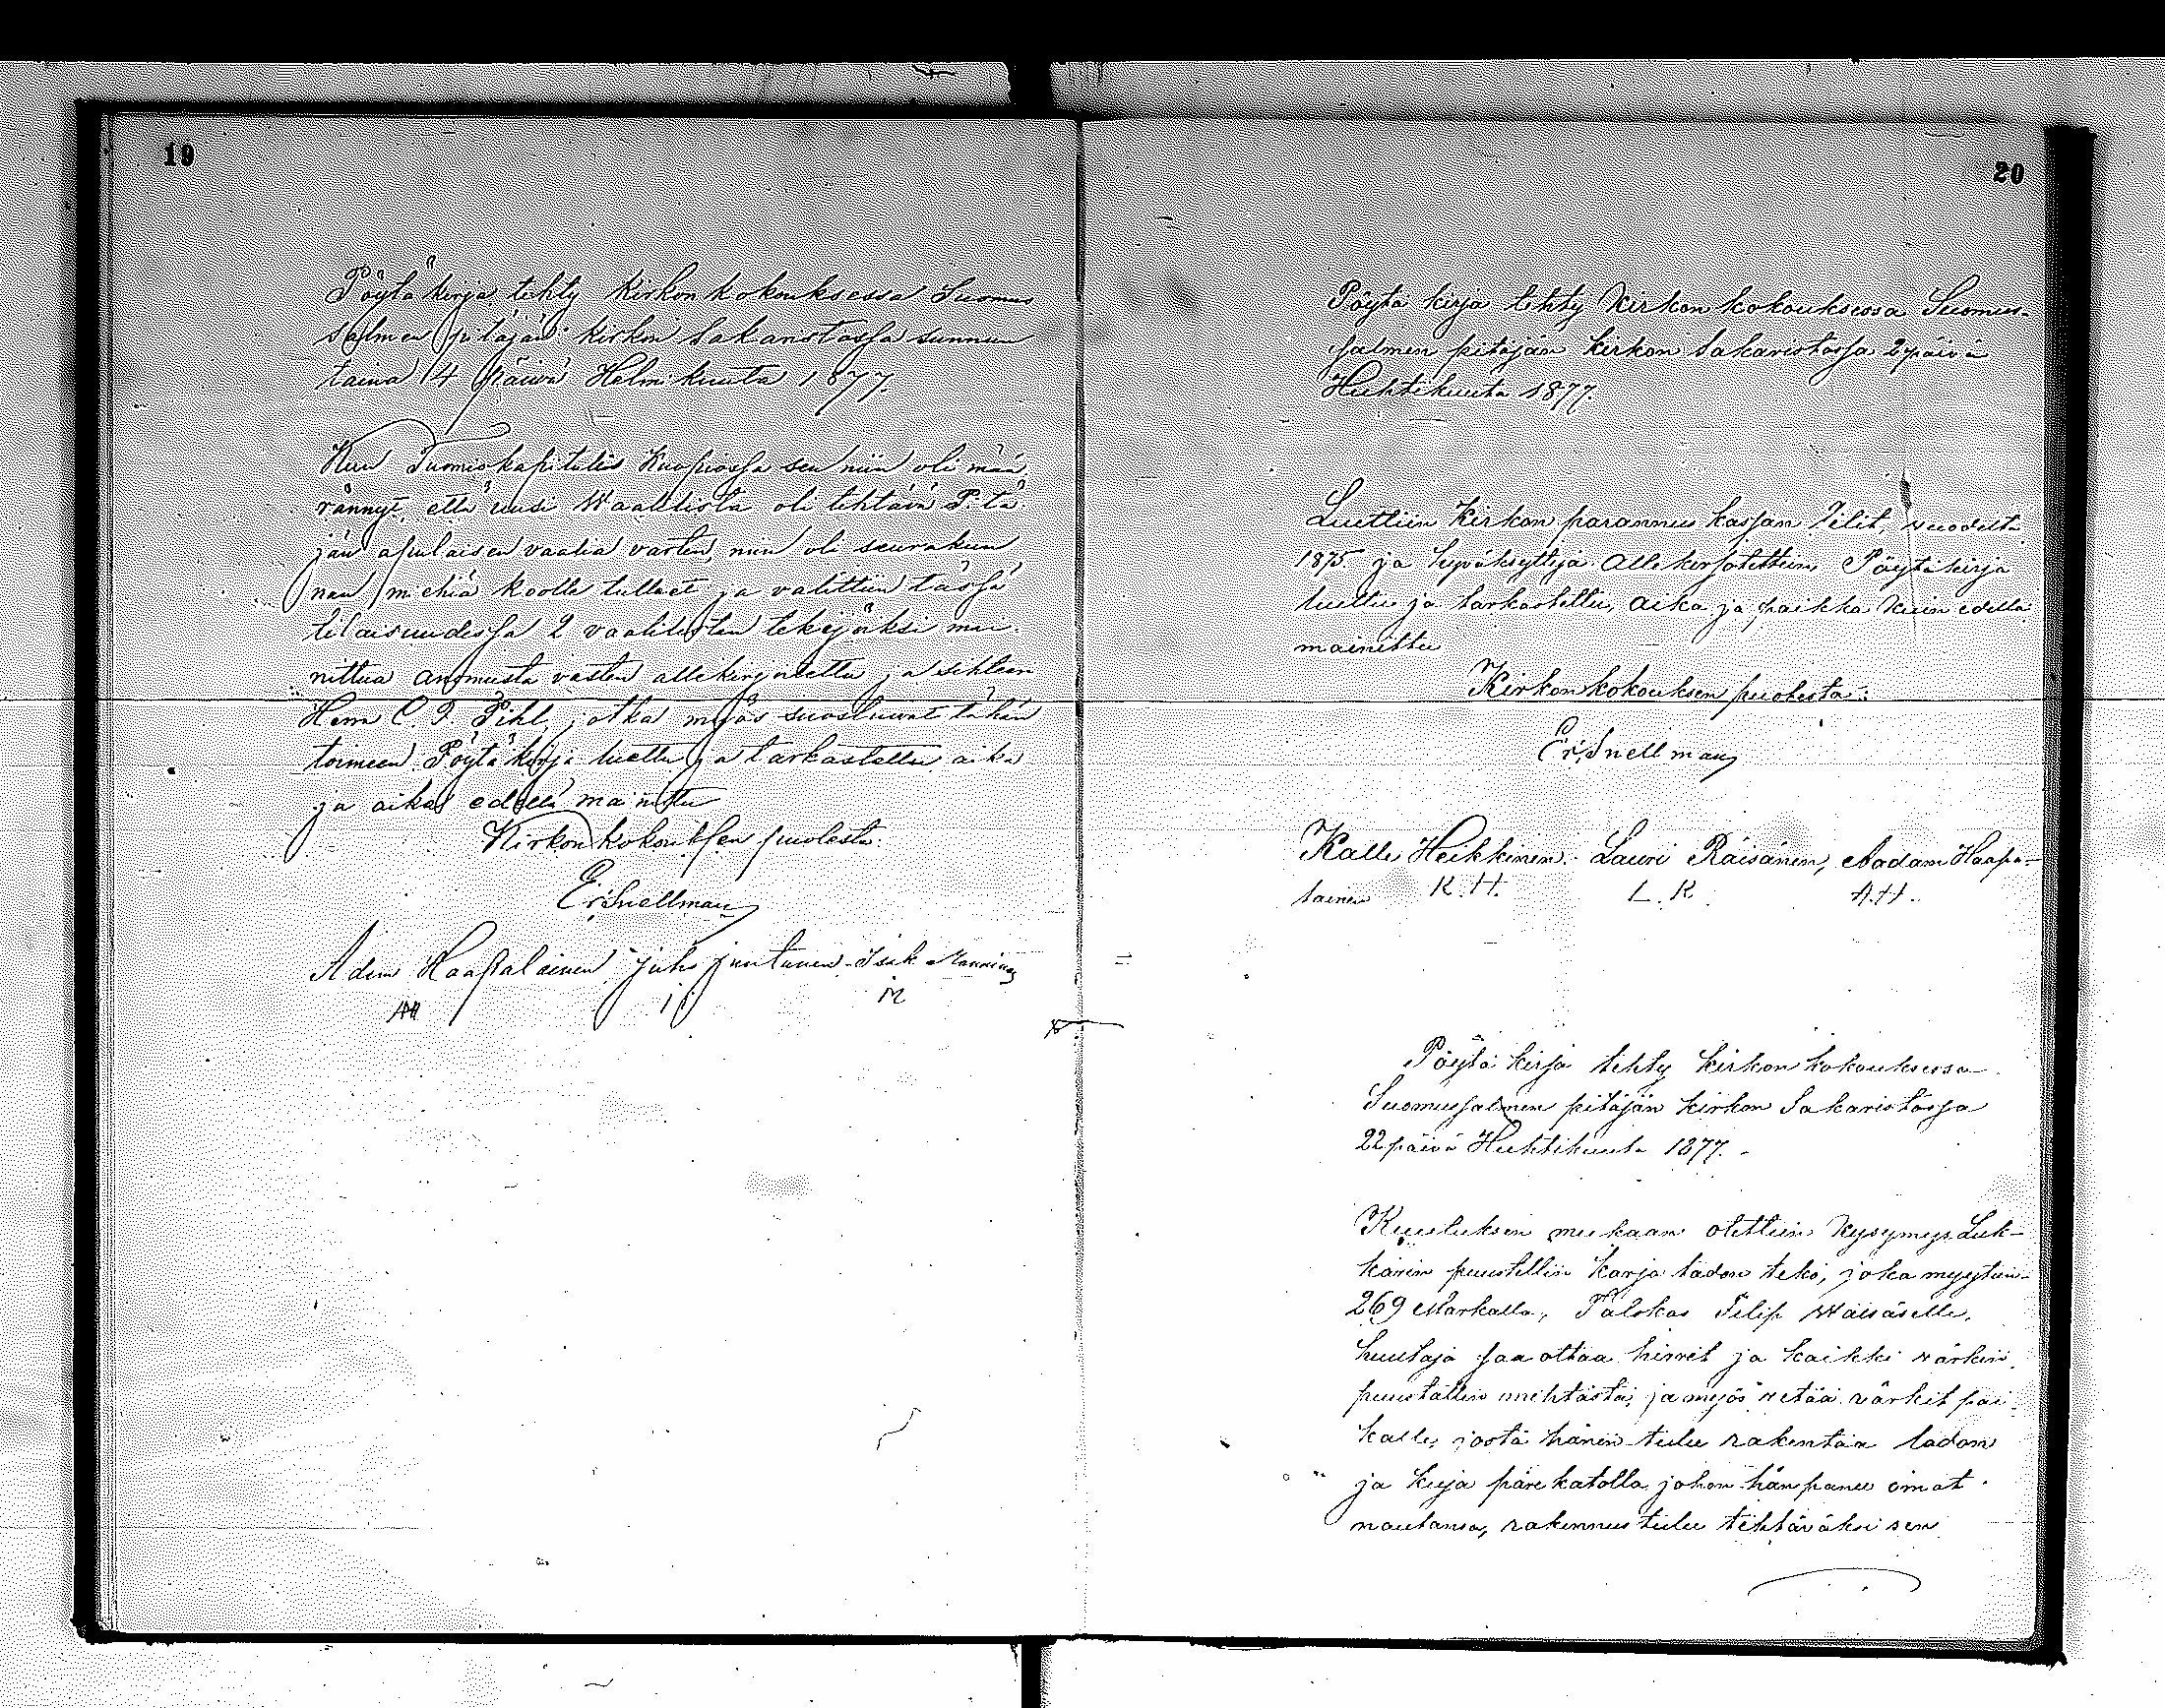 19
Pöytä kirja tehty Kirkon kokouksessa Suomus
salmen pitäjän kirkon Sakaristossa sunnun
taina 4 päivä Helmikuuta 1877.
Kuu Tuomiokapitulis Kuopiossa sen niin oli mää
rännyt, että uusi Waalilista oli tehtävä Pitä
jän apulaisen vaalia varten, niin oli seurakun
nan miehiä koolla tulleet ja valittiin tässä
tilaisuudessa 2 vaalilistan tekijöiksi mu
nittua anomusta vasten allekirjoitettu ja
Herra C. J. Pihl, jotka myös suostuivat tähän
toimeen. Pöytäkirja luettu ja tarkastettu aika
ja aika edellä mainittu
Kirkon kokouksen puolesta.
E: Snellman
Adam Haapalainen Juho juntunen Isak Manninen
AH jj IM
20
Pöytä kirja tehty Kirkon kokouksessa Suomus-
salmen pitäjän Kirkon Sakaristossa 2 päivä
Huhtikuuta 1877.
Luettiin Kirkon parannus kassan Tilit, vuodelta
1875 ja hyväksyttyjä allekirjoitettiin. Pöytäkirja
luettu ja tarkastettu, aika ja paikka kuin edellä
mainittu
Kirkonkokouksen puolesta:
Er: Snellman
Kalle Heikkinen. Lauri Räisänen, Aadam Haapa-
lainen K. H. L. R. A. H.
Pöytä kirja tehty Kirkon kokouksessa
Suomussalmen pitäjän Kirkon Sakaristossa
22 päivä Huhtikuuta 1877.
Kuulutuksen mukaan otettiin Kysymys Luk-
karin puustellin karja ladon teko, joka myytiin
269 Markalla, Talokas Filip Wäisäselle,
huutaja saa ottaa hirret ja kaikki värkin
puuställin mehtästä, ja myös vetää värkit pai
kalle, josta hänen tulee rakentaa ladon
ja kuja pärekatolla, johon hän panee omat
naulansa, rakennus tulee tehtäväksi sen